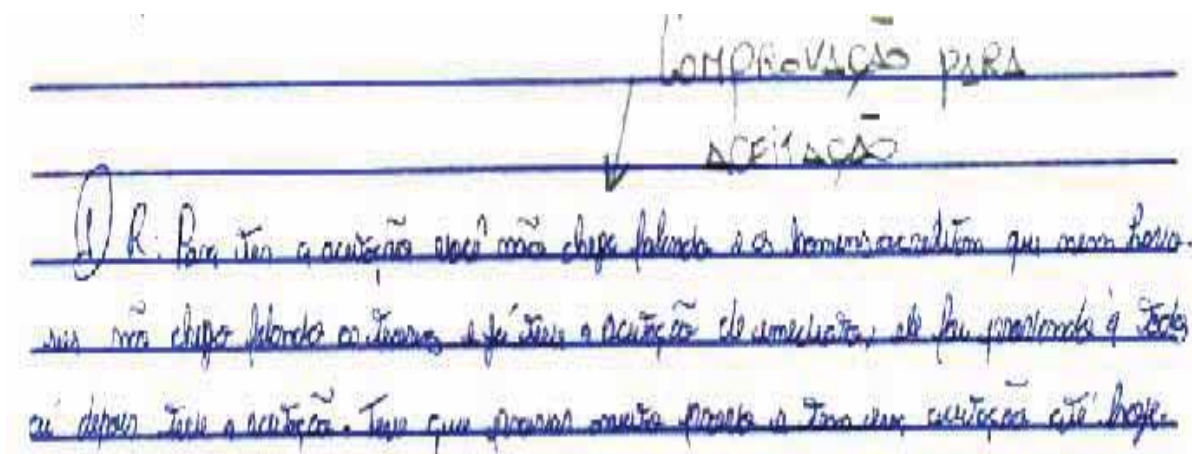 COMPROVAÇÃO PARA
ACEITAÇÃO
1) R: Para ter a aceitação você não chega falando e os homens acreditam que nem
não chego falando as e já teve a aceitação de imediato, ele foi provando a todos
aí depois teve a aceitação. Teve que provar muito e tem aceitação até hoje.